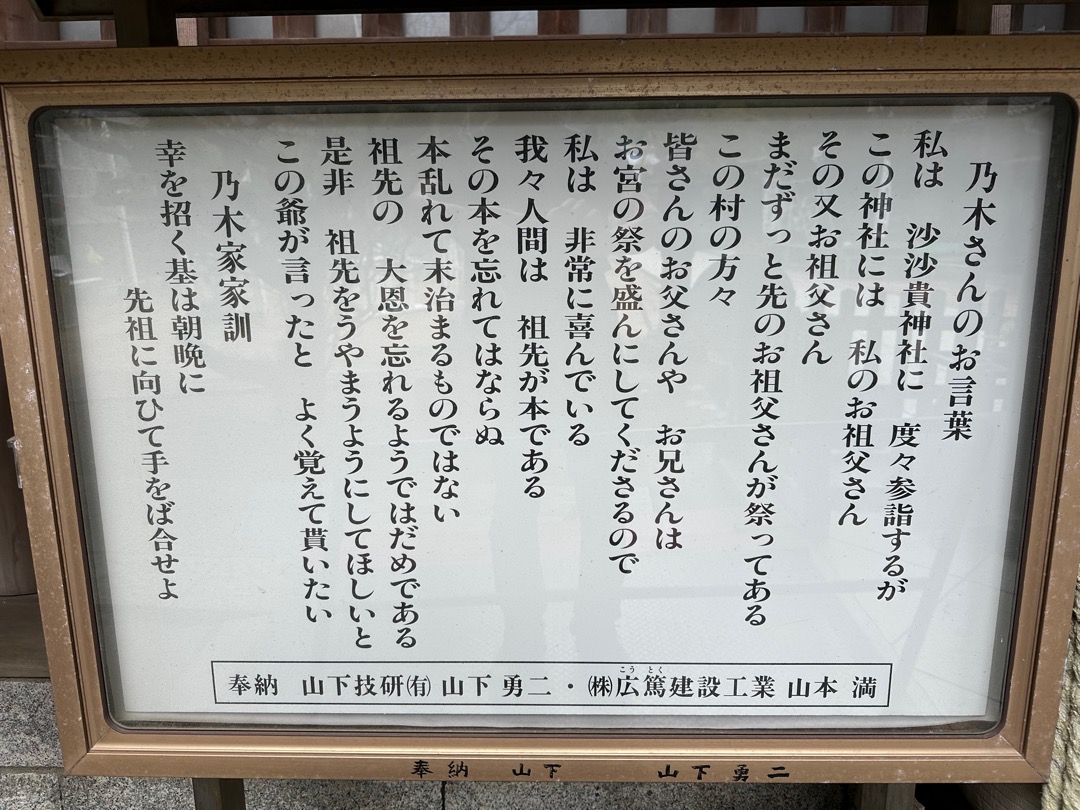 乃木さんのお言葉
私は　沙沙貴神社に　度々参詣するが
この神社には　私のお祖父さん
その又お祖父さん
まだずっと先のお祖父さんが祭ってある
この村の方々
皆さんのお父さんや　お兄さんは
お宮の祭を盛んにしてくださるので
私は　非常に喜んでいる
我々人間は　祖先が本である
その本を忘れてはならぬ
本乱れて末治まるものではない
祖先の　大恩を忘れるようではだめである
是非　祖先をうやまうようにしてほしいと
この爺が言ったと　よく覚えて貰いたい
乃木家家訓
幸を招く基は朝晩に
先祖に向ひて手をば合せよ
こうとく
奉納　山下技研㈲ 山下 勇二・㈱広篤建設工業 山本 満
奉納　山下　山下勇二